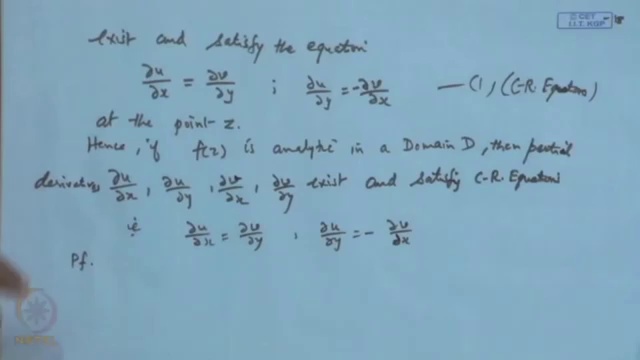 © CET
I.I.T. KGP
exist and satisfy the equation
∂u/∂x = ∂v/∂y ; ∂u/∂y = -∂v/∂x — (1) (C-R. Equations)
at the point z.
Hence, if f(z) is analytic in a Domain D, then partial
derivatives ∂u/∂x, ∂u/∂y, ∂v/∂x, ∂v/∂y exist and satisfy C-R. Equations
ie ∂u/∂x = ∂v/∂y , ∂u/∂y = - ∂v/∂x
Pf.